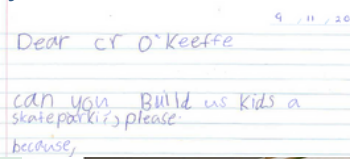 9 , 11 , 20
Dear cr O'Keeffe
can you Build us kids a
skatepark please.
because,